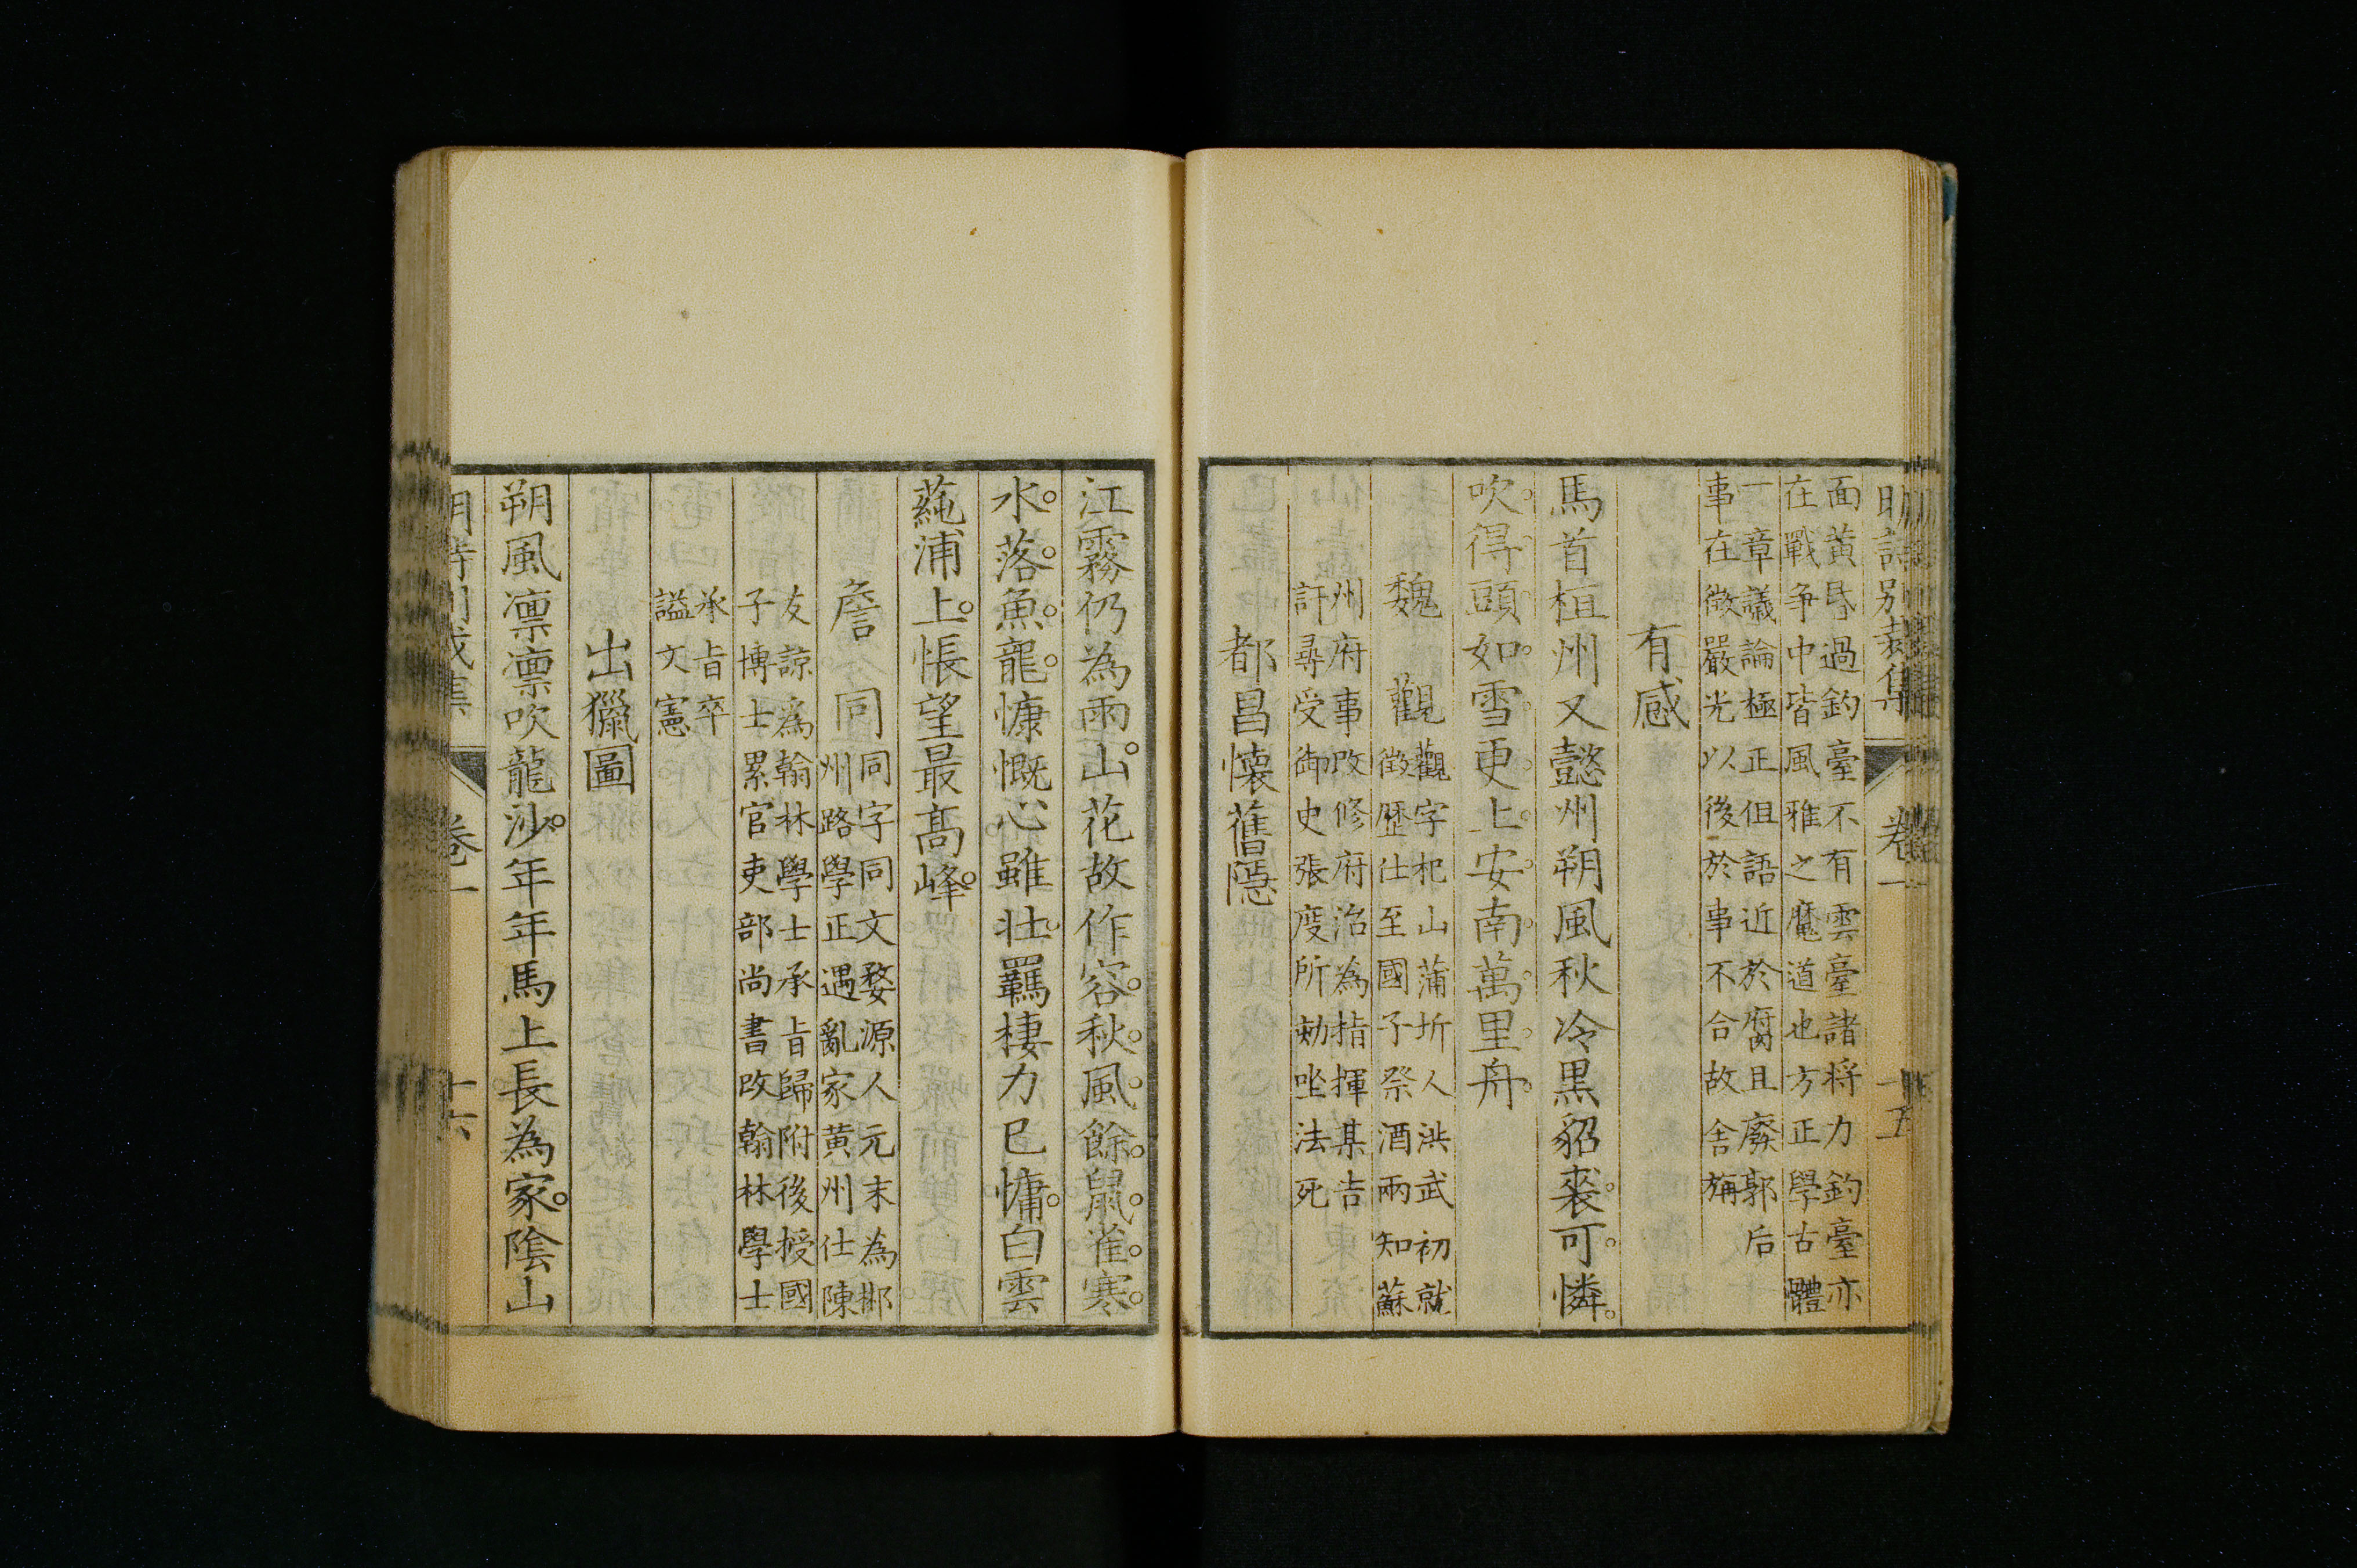 明詩別裁集 卷一 十五
面黃昏過釣臺不有雲臺諸將力釣臺亦
在戰爭中皆風雅之魔道也方正學古體
一章議論極正但語近於腐且廢郭后
事在微嚴光以後於事不合故舍旃
有感
馬首桓州又懿州朔風秋冷黑貂裘。可。憐。
吹。得。頭。如。雪。更。上。安。南。萬。里。舟。
魏觀
觀字杞山蒲圻人洪武初就
徵歷仕至國子祭酒兩知蘇
州府事改修府治為指揮某告
訐尋受御史張度所劾坐法死
都昌懷舊隱
江霧仍為雨。山花故作容。秋。風。餘。鼠。雀。寒。
水。落。魚。龍。慷慨心雖壯。羈棲力已慵。白雲
蒓浦上。悵望最高峰。
詹同
同字同文婺源人元末為郴
州路學正遇亂家黃州仕陳
友諒為翰林學士承旨歸附後授國
子博士累官吏部尚書改翰林學士
承旨卒
謚文憲
出獵圖
朔風凛凛吹龍沙。年年馬上長為家。陰山
卷一 十六